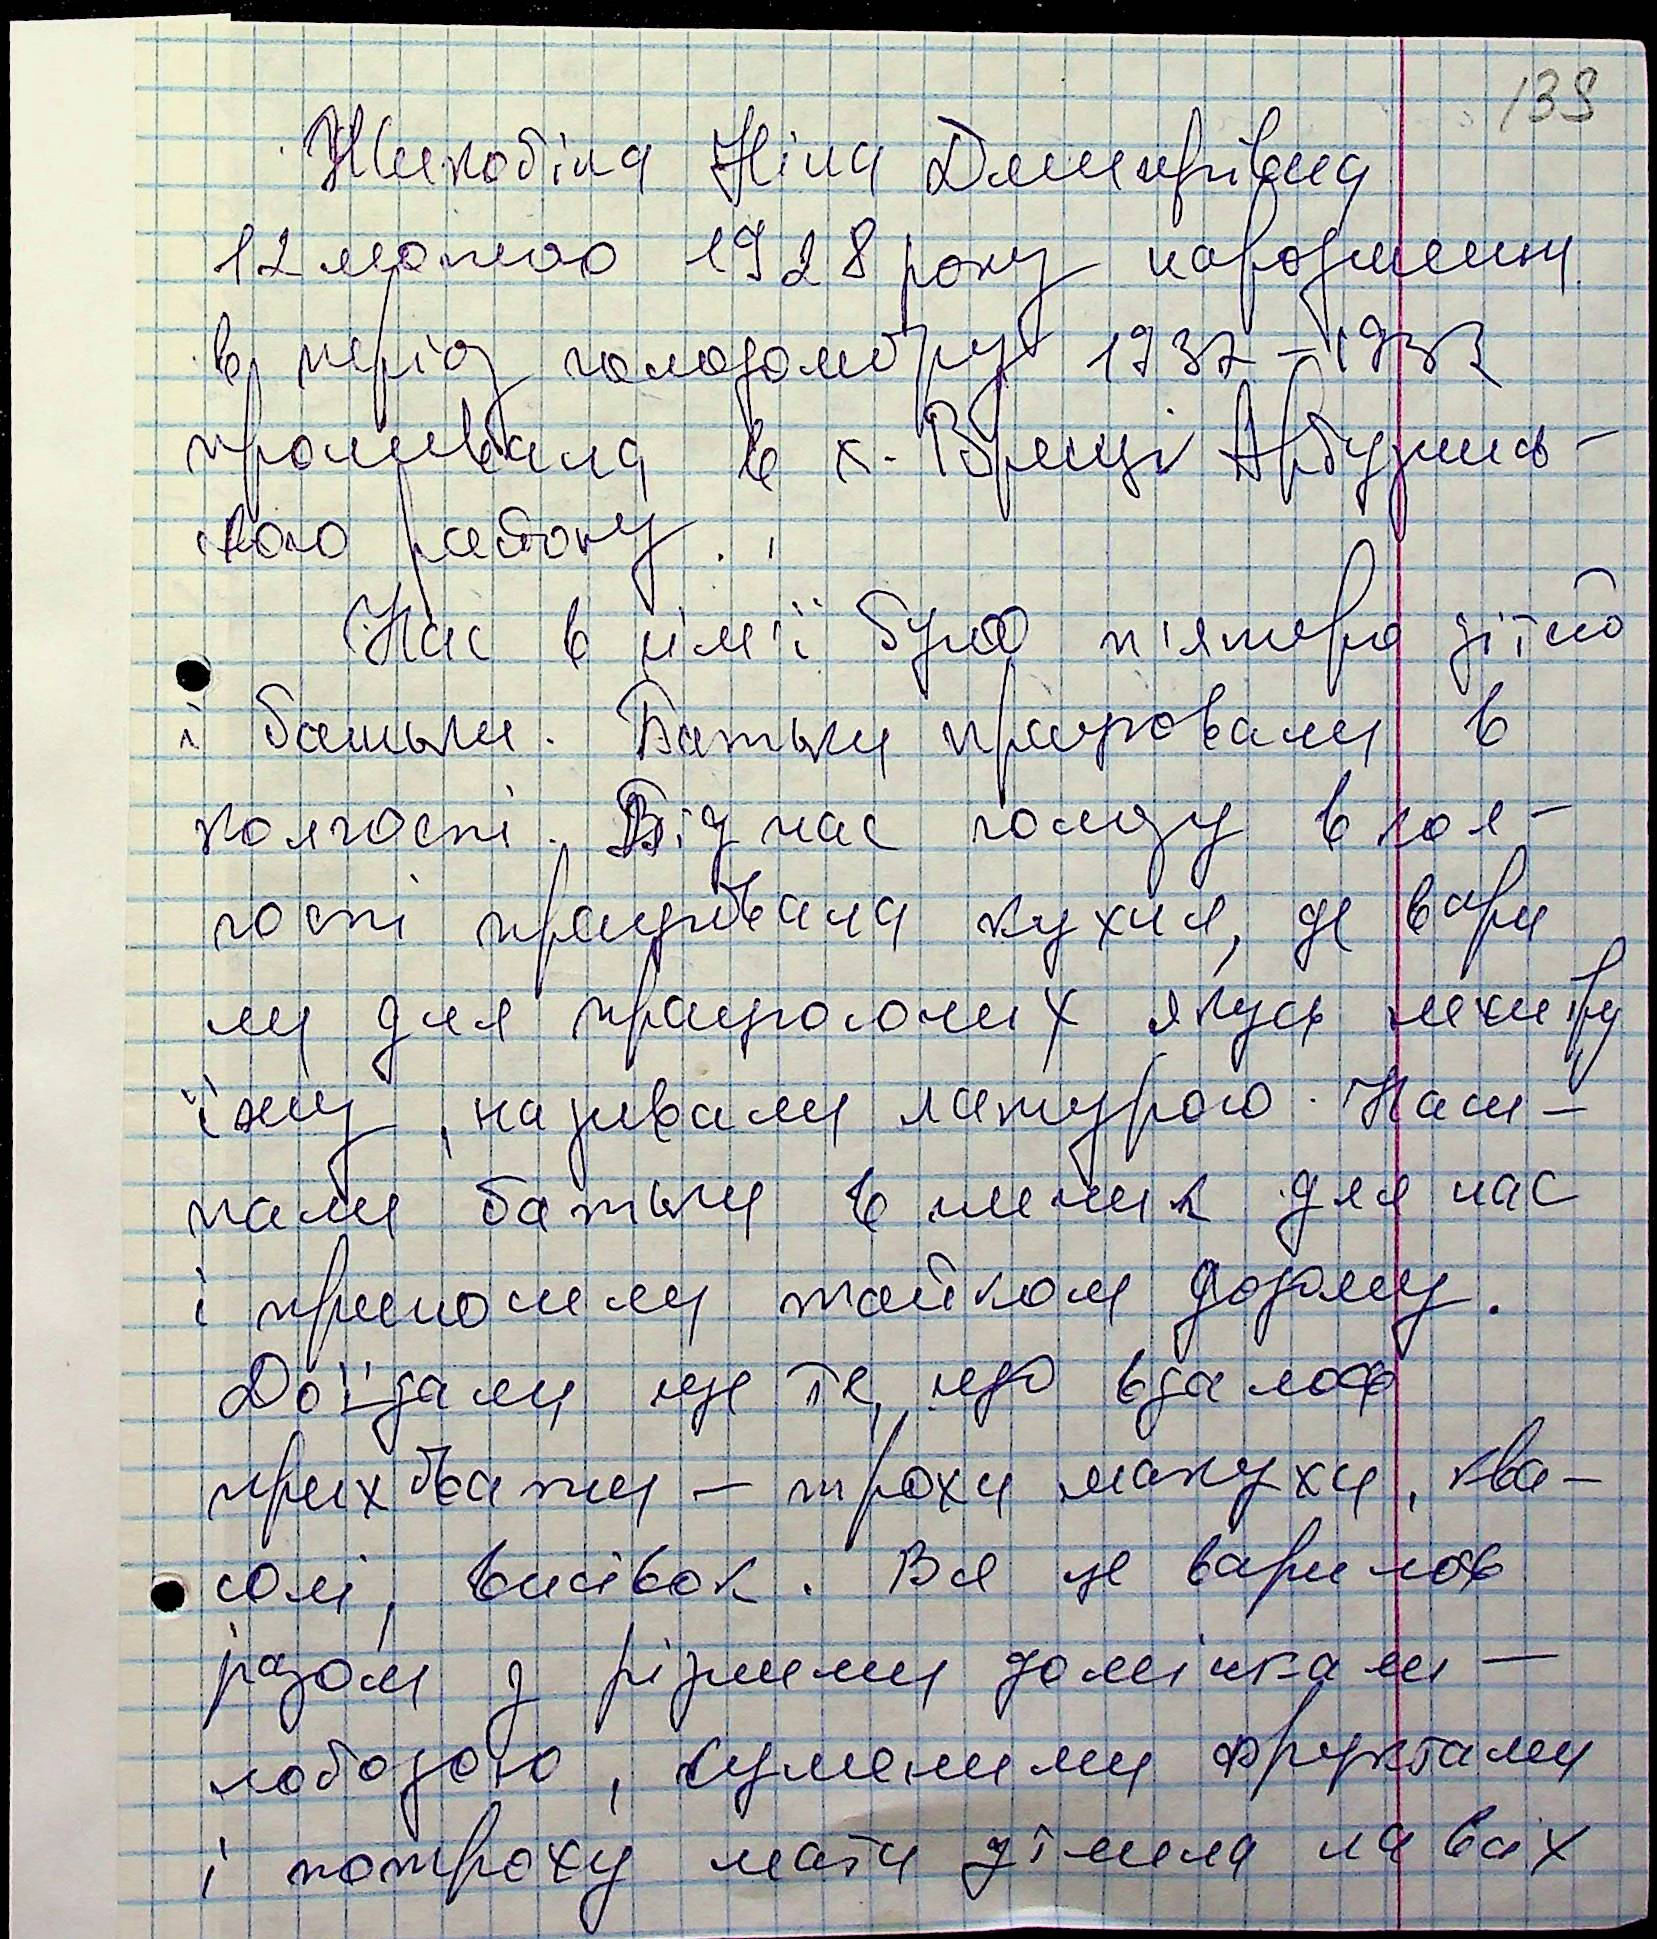 139
Ніна Дмитрівна
12 лютого 1928 року народження
в період голодомору 1932-1933
проживала в х. Арбузинсь-
кого району.
Нас в сім'ї було п'ятеро дітей
і батьки. Батьки працювали в
колгоспі. Під час голоду в кол-
госпі працювала кухня, де вари
ли для працюючих якусь нехитру
їжу, називали затірою.
батьки в для нас
і приносили тайком додому.
Доїдали ще те, що вдалось
прихвати - трохи макухи, ква-
солі, висівок. Все це варилось
разом з різними домішками -
лободою, сушеними фруктами
і потроху мати ділила на всіх